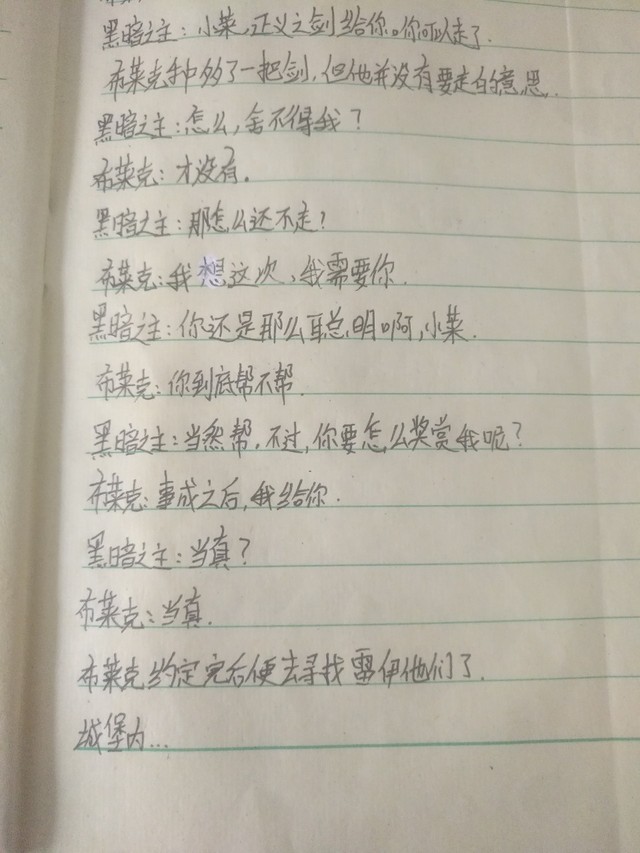 黑暗之主：小莱，正义之剑给你。你可以走了.
布莱克手中多了一把剑，但他并没有要走的意思.
黑暗之主：怎么，舍不得我？
布莱克：才没有.
黑暗之主：那怎么还不走？
布莱克：我想这次、我需要你.
黑暗之主：你还是那么聪明啊，小莱.
布莱克：你到底帮不帮.
黑暗之主：当然帮，不过，你要怎么奖赏我呢？
布莱克：事成之后，我给你.
黑暗之主：当真？
布莱克：当真.
布莱克约定完后便去寻找雷伊他们了.
城堡内...